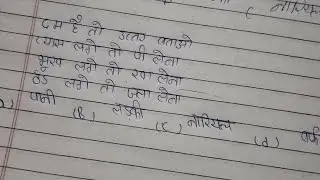 ( नारियल
दम है तो उत्तर बताओ
प्यास लगे तो पी लेना
भूख लगे तो खा लेना
ठंड लगे तो जला लेना
पानी (B, लकड़ी (C, नारियल (d)